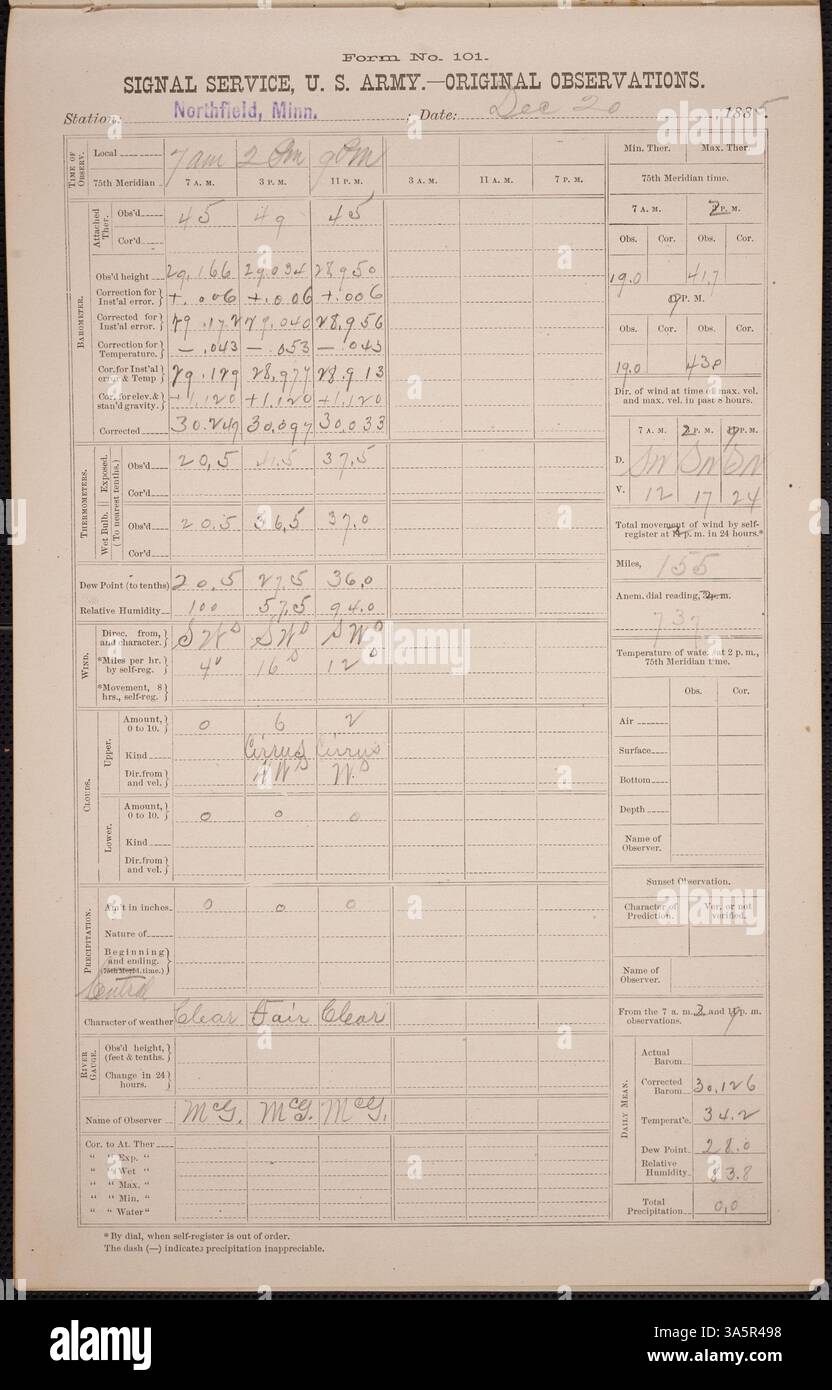 Form No. 101.
SIGNAL SERVICE, U. S. ARMY.—ORIGINAL OBSERVATIONS.
Station: Northfield, Minn. ; Date: Dec 20 1885.
TIME OF OBSERV.
Local 7 am 2 Pm 9 Pm
75th Meridian 7 A. M. 3 P. M. 11 P. M. 3 A. M. 11 A. M. 7 P. M.
BAROMETER.
Attached Ther.
Obs'd 45 49 45
Cor'd
Obs'd height 29.166 29.034 28.950
Correction for Inst'al error. +.006 +.006 +.006
Corrected for Inst'al error. 29.172 29.040 28.956
Correction for Temperature. —.043 —.053 —.043
Cor. for Inst'al error & Temp 29.129 28.977 28.913
Cor. for elev. & stan'd gravity. +1.120 +1.120 +1.120
Corrected 30.249 30.097 30.033
THERMOMETERS.
Wet Bulb. || Exposed. (To nearest tenths.)
Obs'd 20.5 41.5 37.5
Cor'd
Obs'd 20.5 36.5 37.0
Cor'd
Dew Point (to tenths) 20.5 27.5 36.0
Relative Humidity 100 57.5 94.0
WIND.
Direc. from, and character. SW SW SW
*Miles per hr. by self-reg. 4 16 12
*Movement, 8 hrs., self-reg.
CLOUDS.
Upper.
Amount, 0 to 10. 0 6 2
Kind Cirrus Cirrus
Dir. from and vel. NW W
Lower.
Amount, 0 to 10. 0 0 0
Kind
Dir. from and vel.
PRECIPITATION.
Am't in inches. 0 0 0
Nature of
Beginning and ending. (75th Merid. time.)
Central
Character of weather Clear Fair Clear
RIVER GAUGE.
Obs'd height, (feet & tenths.
Change in 24 hours.
Name of Observer McG. McG. McG.
Cor. to At. Ther
" " Exp. "
" " Wet "
" " Max. "
" " Min. "
" " Water"
* By dial, when self-register is out of order.
The dash (—) indicates precipitation inappreciable.
Min. Ther. Max. Ther.
75th Meridian time.
7 A. M. 2 P. M.
Obs. Cor. Obs. Cor.
19.0 41.7
9 P. M.
Obs. Cor. Obs. Cor.
19.0 43.0
Dir. of wind at time of max. vel. and max. vel. in past 8 hours.
7 A. M. 2 P. M. 9 P. M.
D. SW SW SW
V. 12 17 24
Total movement of wind by self-register at p. m. in 24 hours.*
Miles, 155
Anem. dial reading, p. m.
737
Temperature of water at 2 p. m., 75th Meridian time.
Obs. Cor.
Air
Surface
Bottom
Depth
Name of Observer.
Sunset Observation.
Character of Prediction. Ver. or not verified.
Name of Observer.
From the 7 a. m. 2 and 9 p. m. observations.
DAILY MEAN.
Actual Barom
Corrected Barom 30.126
Temperat'e. 34.2
Dew Point 28.0
Relative Humidity 83.8
Total Precipitation 0.0
alamy
Image ID: 3A5R498
www.alamy.com